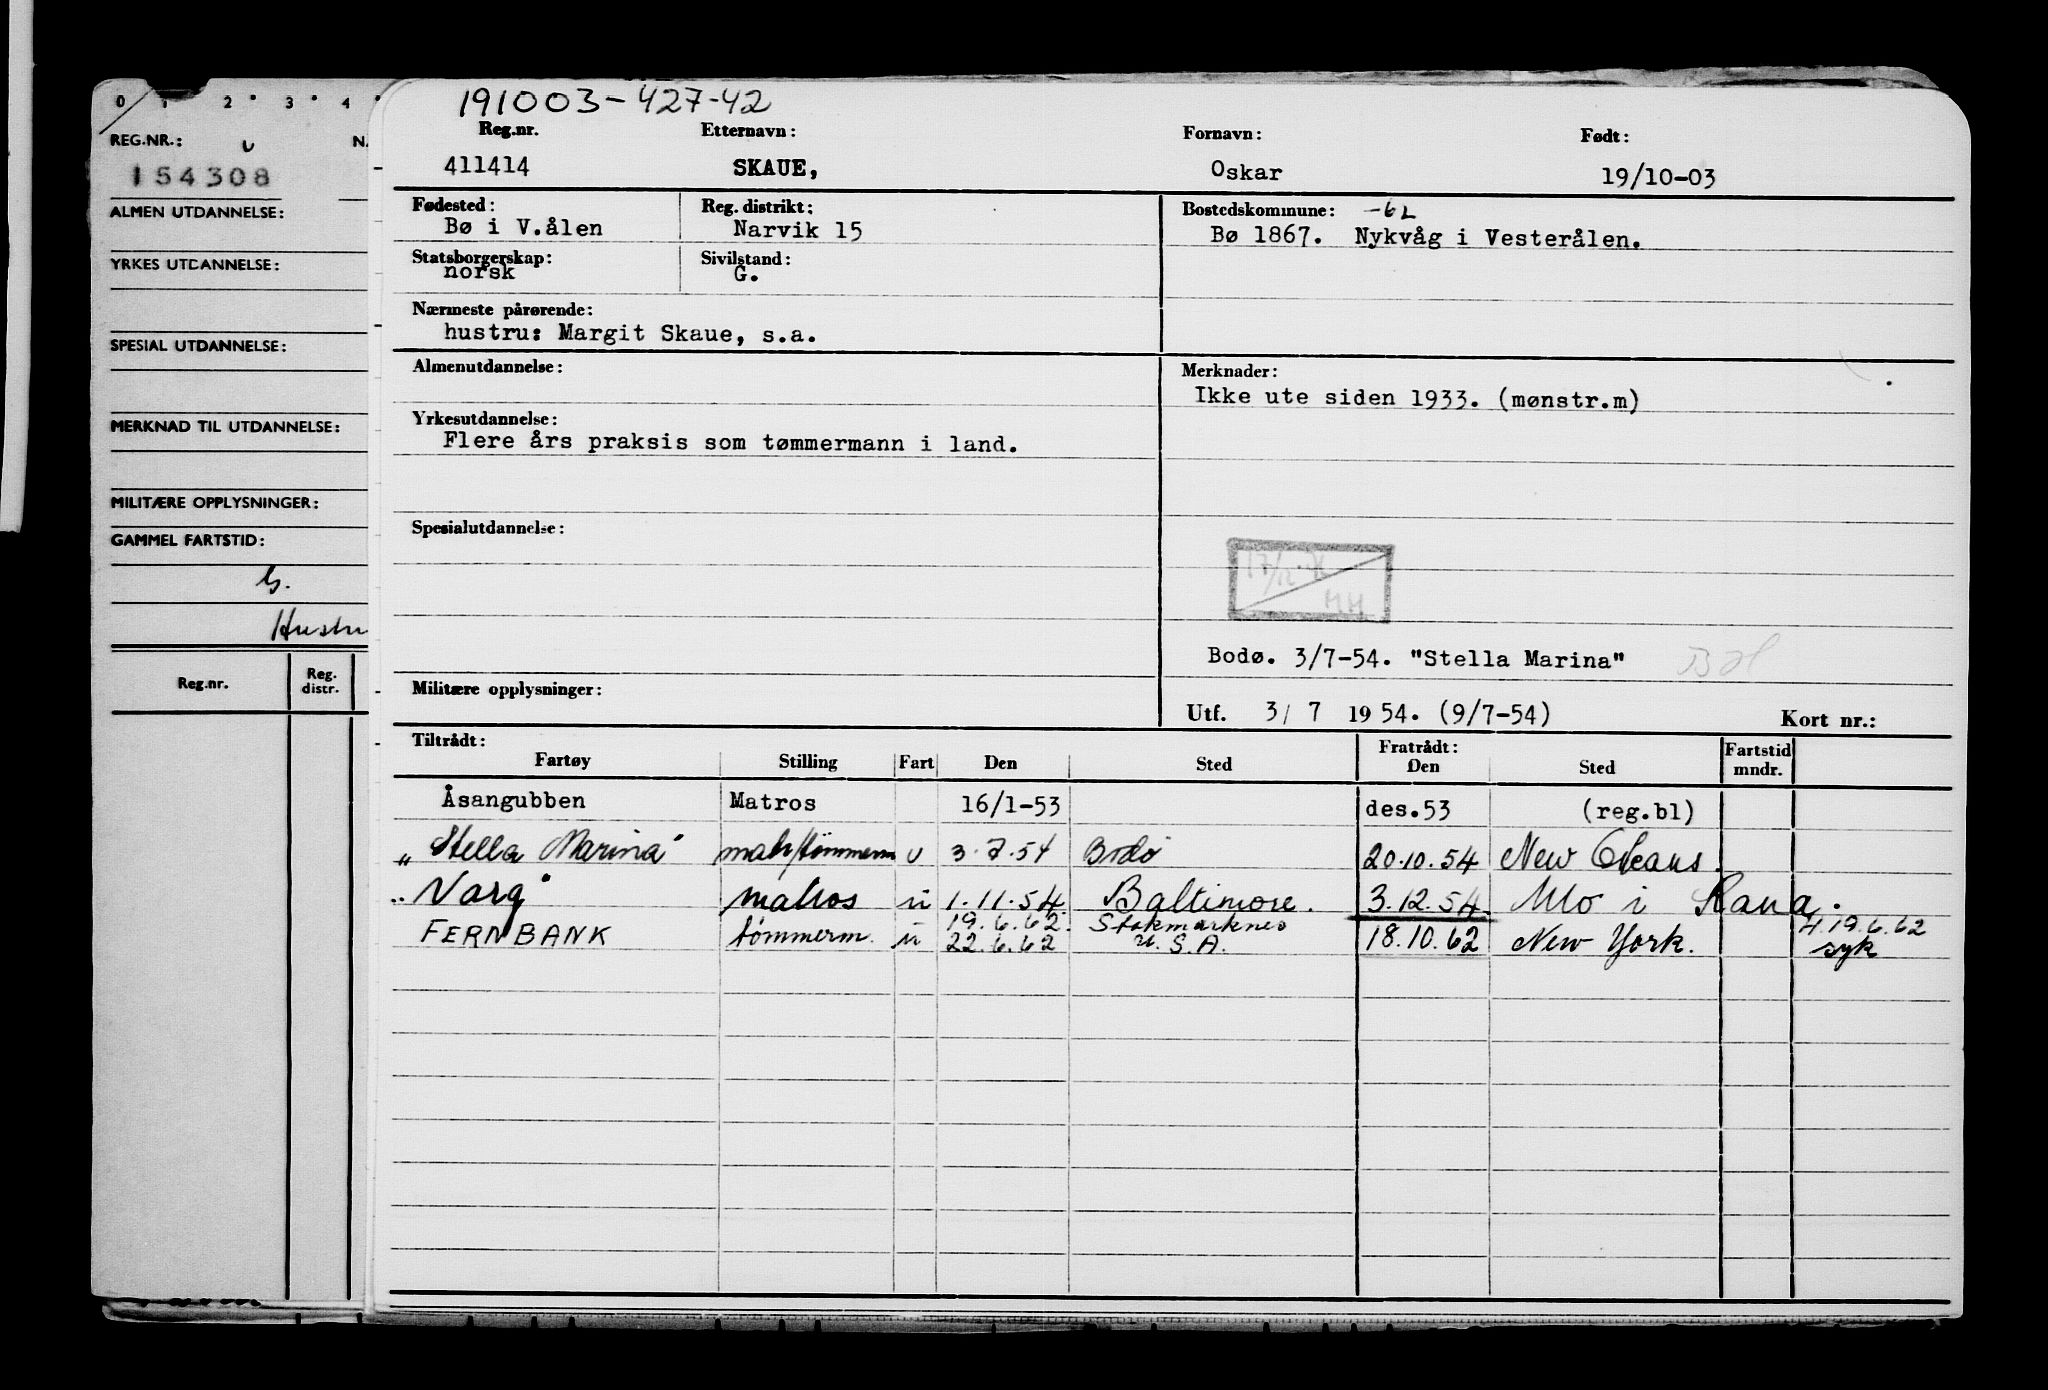 0 1 2 3 4
REG.NR.:
154308
ALMEN UTDANNELSE:
YRKES UTDANNELSE:
SPESIAL UTDANNELSE:
MERKNAD TIL UTDANNELSE:
MILITÆRE OPPLYSNINGER:
GAMMEL FARTSTID:
G.
Hustru
Reg.nr. Reg. distr.
191003-427-42
Reg.nr. Etternavn: Fornavn: Født:
411414 SKAUE, Oskar 19/10-03
Fødested: Reg. distrikt: Bostedskommune: -62
Bø i V.ålen Narvik 15 Bø 1867. Nykvåg i Vesterålen.
Statsborgerskap: Sivilstand:
norsk G.
Nærmeste pårørende:
hustru: Margit Skaue, s.a.
Almenutdannelse: Merknader:
Ikke ute siden 1933. (mønstr.m)
Yrkesutdannelse:
Flere års praksis som tømmermann i land.
Spesialutdannelse:
17/12
MH
Bodø. 3/7-54. "Stella Marina"
Militære opplysninger:
Utf. 3/ 7 1954. (9/7-54) Kort nr.:
Tiltrådt: Fratrådt: Fartstid
Fartøy Stilling Fart Den Sted Den Sted mndr.
Åsangubben Matros 16/1-53 des.53 (reg.bl)
„Stella Marina" matr/tømmerm u 3.7.54 Bodø 20.10.54 New Orleans.
„Varg" matros u 1.11.54 Baltimore. 3.12.54. Mo i Rana.
19.6.62. Stokmarknes 4.19.6.62
FERNBANK tømmerm. u 22.6.62 U.S.A. 18.10.62 New York. syk